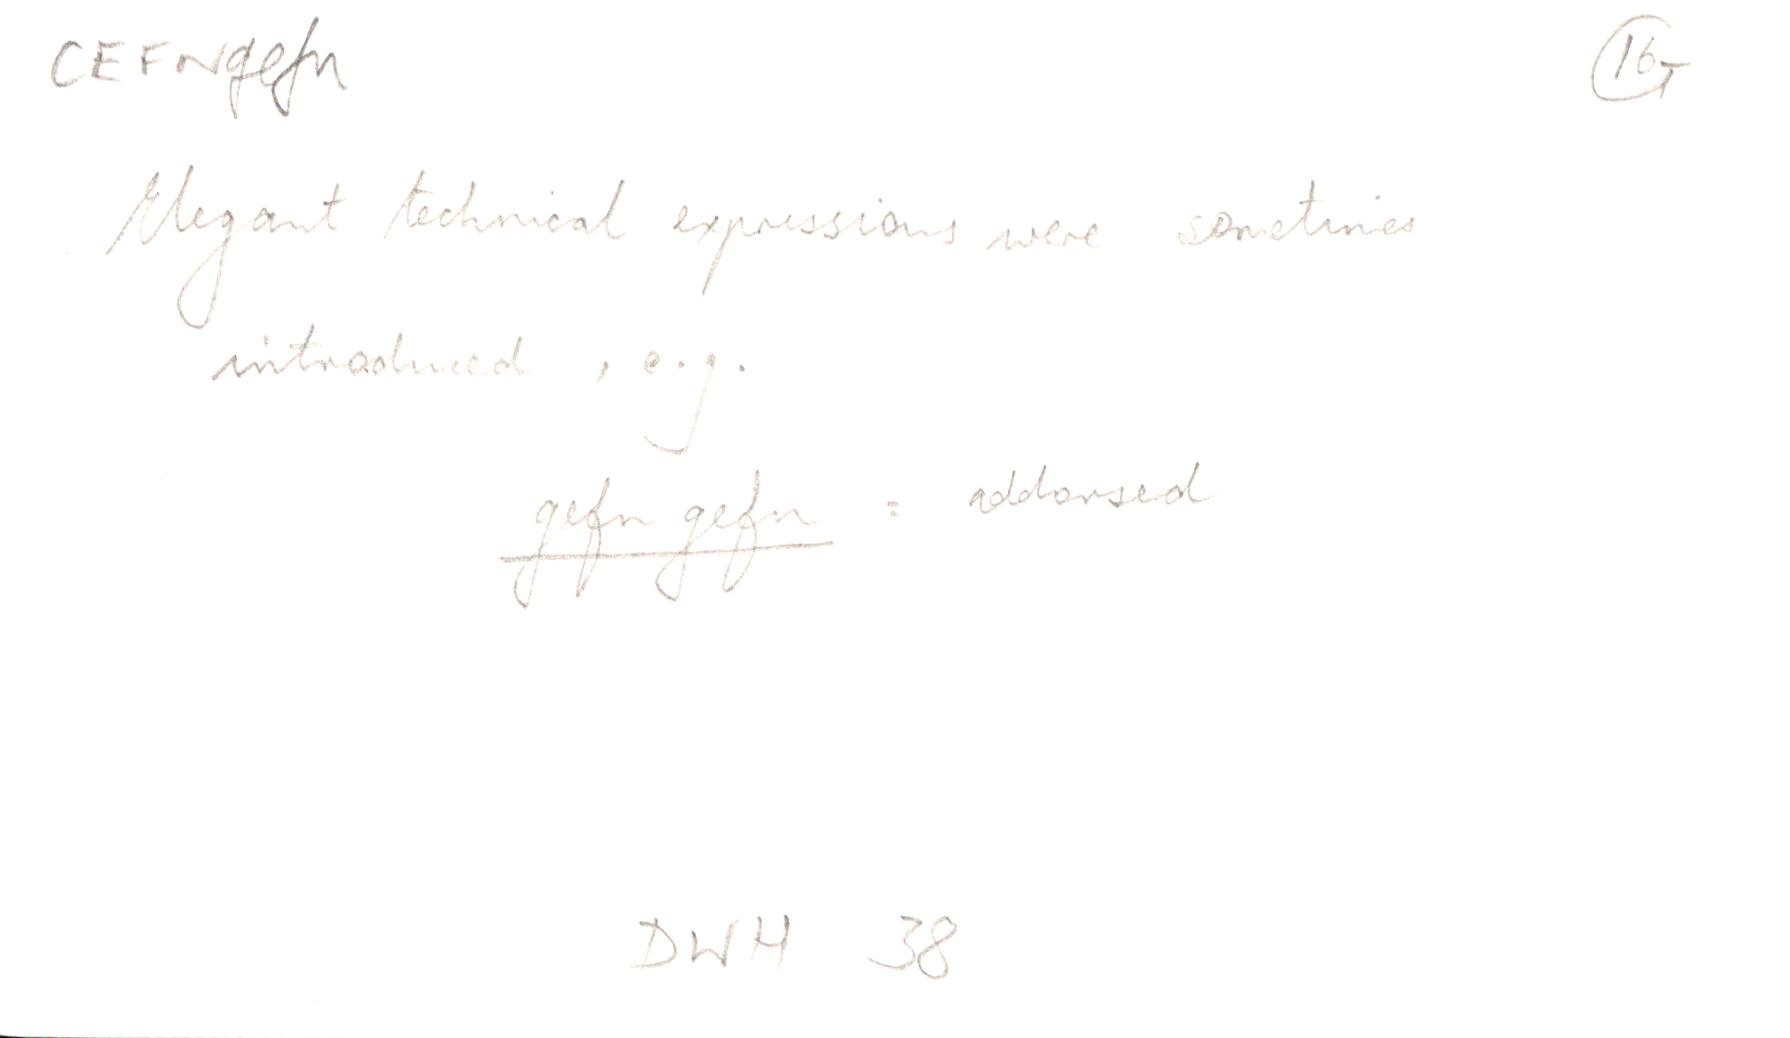 CEFNgefn
16
Elegant technical expressions were sometimes
introduced, e.g.
gefn gefn = addorsed
DWH 38